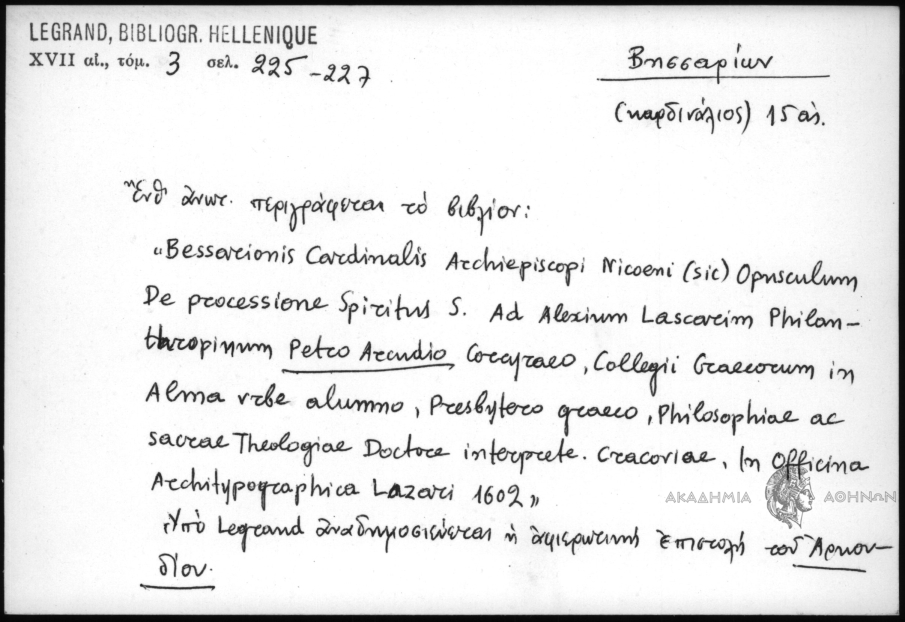 LEGRAND, BIBLIOGR. HELLENIQUE
XVII αἰ., τόμ. 3 σελ. 225-227
Βησσαρίων
(καρδινάλιος) 15 αἰ.
Ἔνθ' ἀνωτ. περιγράφεται τὸ βιβλίον:
"Bessarionis Cardinalis Archiepiscopi Nicoeni (sic) Opusculum
De processione Spiritus S. Ad Alexium Lascarim Philan-
thropinum Petro Arcudio Corcyraeo, Collegii Graecorum in
Alma vrbe alumno, Presbytero graeco, Philosophiae ac
sacrae Theologiae Doctore interprete. Cracoviae, In Officina
Architypographica Lazari 1602"
ΑΚΑΔΗΜΙΑ ΑΘΗΝΩΝ
Ὑπὸ Legrand ἀναδημοσιεύεται ἡ ἀφιερωτικὴ ἐπιστολὴ τοῦ Ἀρκου-
δίου.